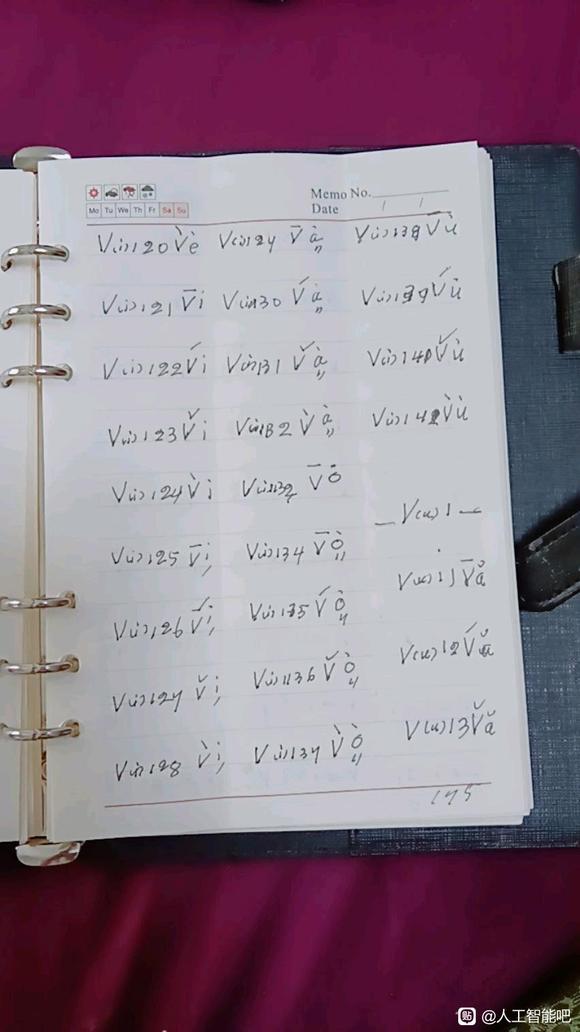 Memo No.
Mo Tu We Th Fr Sa Su
Date / /
V(i)120 V̀è
V(i)121 V̄i
V(i)122 V́i
V(i)123 V̌i
V(i)124 V̀i
V(i)125 V̄i,
V(i)126 V́i,
V(i)127 V̌i,
V(i)128 V̀i,
V(i)130 V́à„
V(i)131 V̌à„
V(i)132 V̀à„
V(i)134 V̄ò„
V(i)135 V́ò„
V(i)136 V̌ò„
V(i)137 V̀ò„
V(i)138 V̄ù
V(i)139 V́ù
V(i)140 V̌ù
— V(u)1 —
V(u)11 V̄ǎ
V(u)13 V̌ǎ
175
@人工智能吧